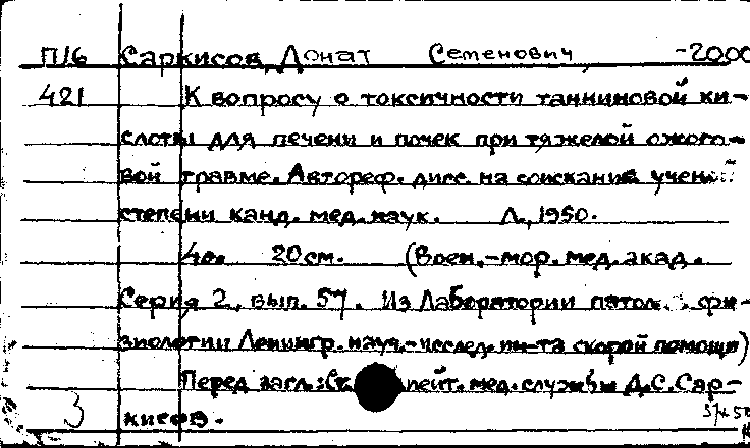 П/6 Саркисов, Донат Семенович, -2000
421 К вопросу о токсичности танниновой ки-
слоты для печени и почек при тяжелой ожого-
вой травме. Автореф. дисс. на соискание ученой
степени канд. мед. наук. Л., 1950.
4с. 20 см. (Воен.-мор. мед. акад.
Серия 2, вып. 57. Из Лаборатории патол. фи-
зиологии Ленингр. науч.-исслед. ин-та скорой помощи)
Перед загл.: лейт. мед. службы Д.С. Сар-
3 кисов.